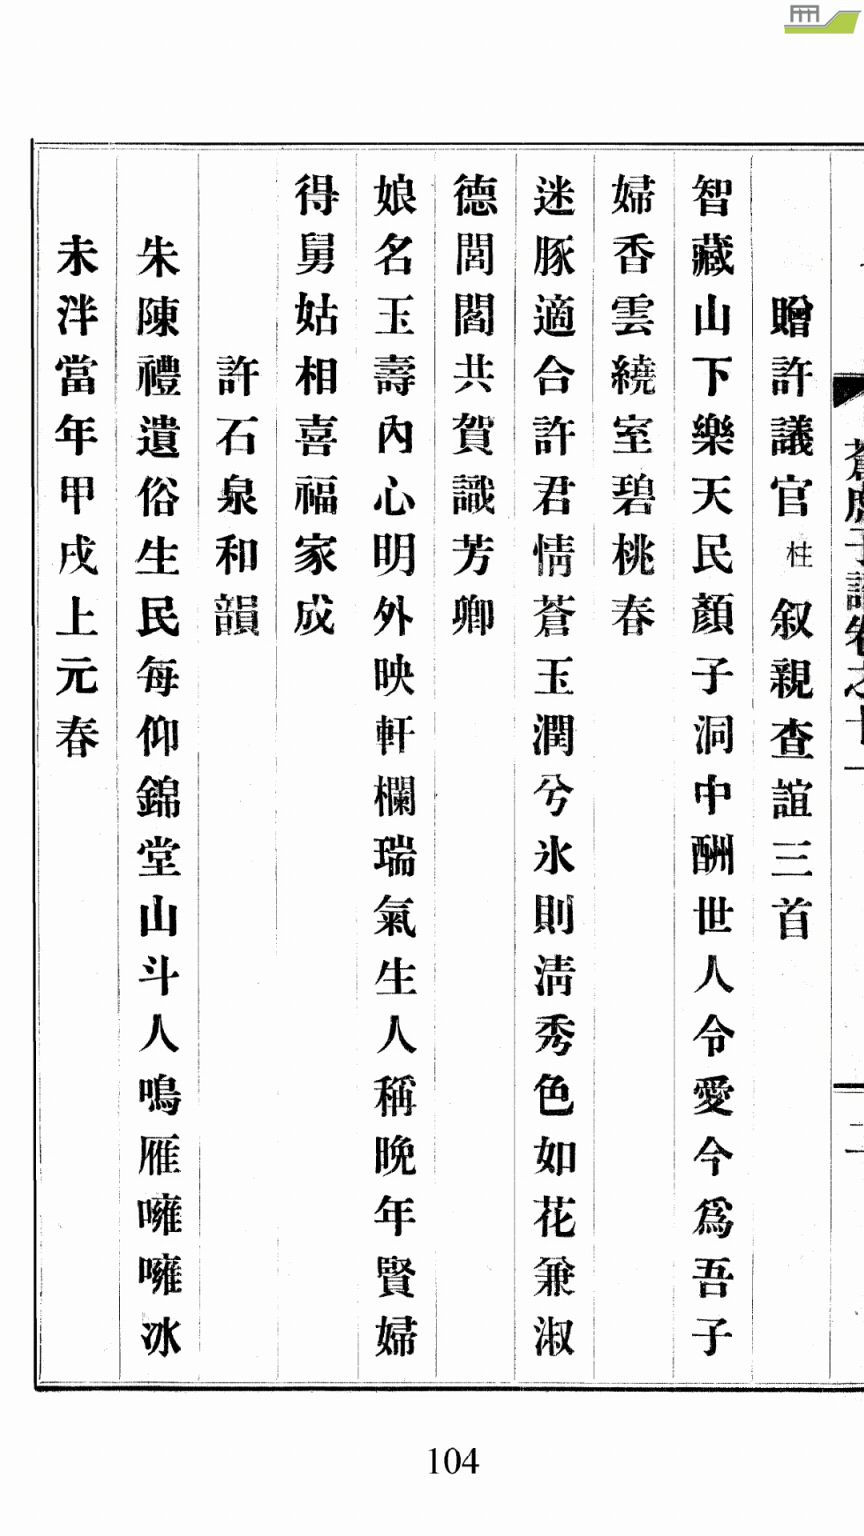 贈許議官柱叙親查誼三首
智藏山下樂天民顏子洞中酬世人令愛今爲吾子
婦香雲繞室碧桃春
迷豚適合許君情蒼玉潤兮氷則淸秀色如花兼淑
德閭閻共賀識芳卿
娘名玉壽內心明外映軒欄瑞氣生人稱晩年賢婦
得舅姑相喜福家成
許石泉和韻
朱陳禮遺俗生民每仰錦堂山斗人鳴雁嗈嗈冰
未泮當年甲戌上元春
104